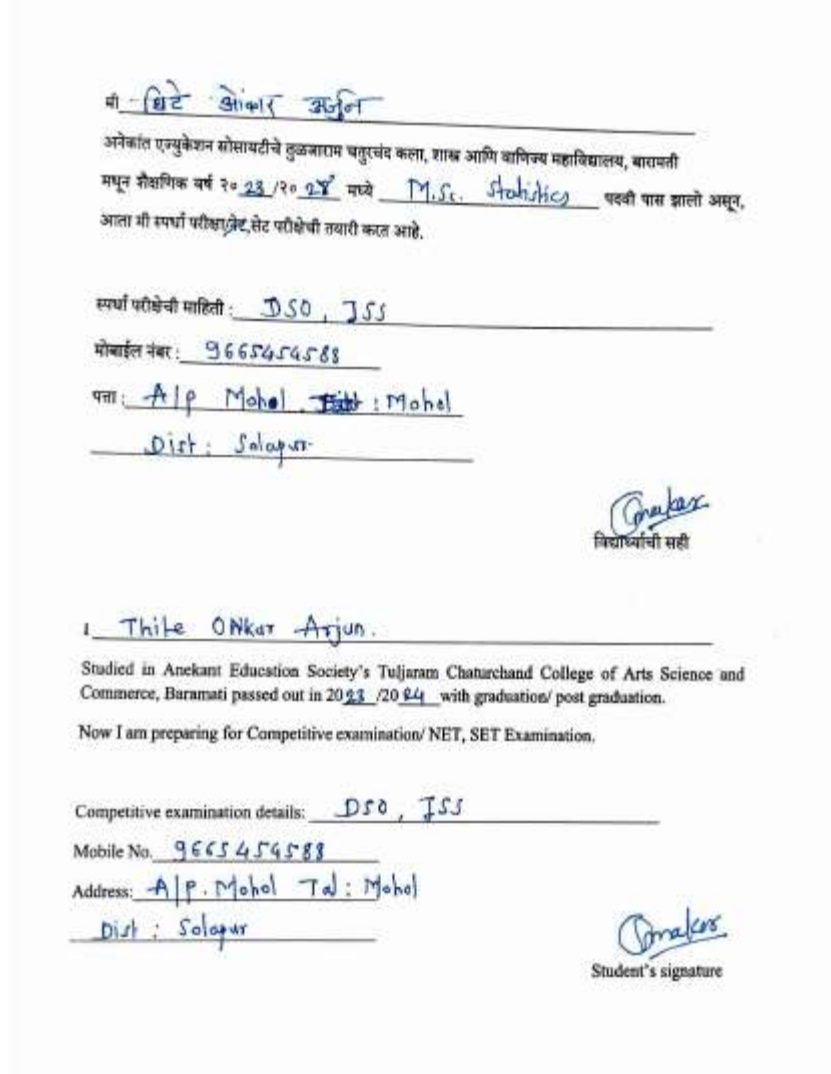 मी थिटे ओंकार अर्जुन
अनेकांत एज्युकेशन सोसायटीचे तुळजाराम चतुरचंद कला, शास्त्र आणि वाणिज्य महाविद्यालय, बारामती
मधून शैक्षणिक वर्ष २० 23 /२० 24 मध्ये M.Sc. Statistics पदवी पास झालो असून,
आता मी स्पर्धा परीक्षा/नेट,सेट परीक्षेची तयारी करत आहे.
स्पर्धा परीक्षेची माहिती : DSO, ISS
मोबाईल नंबर : 9665454588
पत्ता : A/p Mohol : Mohol
Dist : Solapur
Omakar
विद्यार्थ्याची सही
I Thite Onkar Arjun.
Studied in Anekant Education Society's Tuljaram Chaturchand College of Arts Science and
Commerce, Baramati passed out in 2023 /2024 with graduation/ post graduation.
Now I am preparing for Competitive examination/ NET, SET Examination.
Competitive examination details: DSO, ISS
Mobile No. 9665454588
Address: A/P. Mohol Tal : Mohol
Dist : Solapur
Omakar
Student's signature